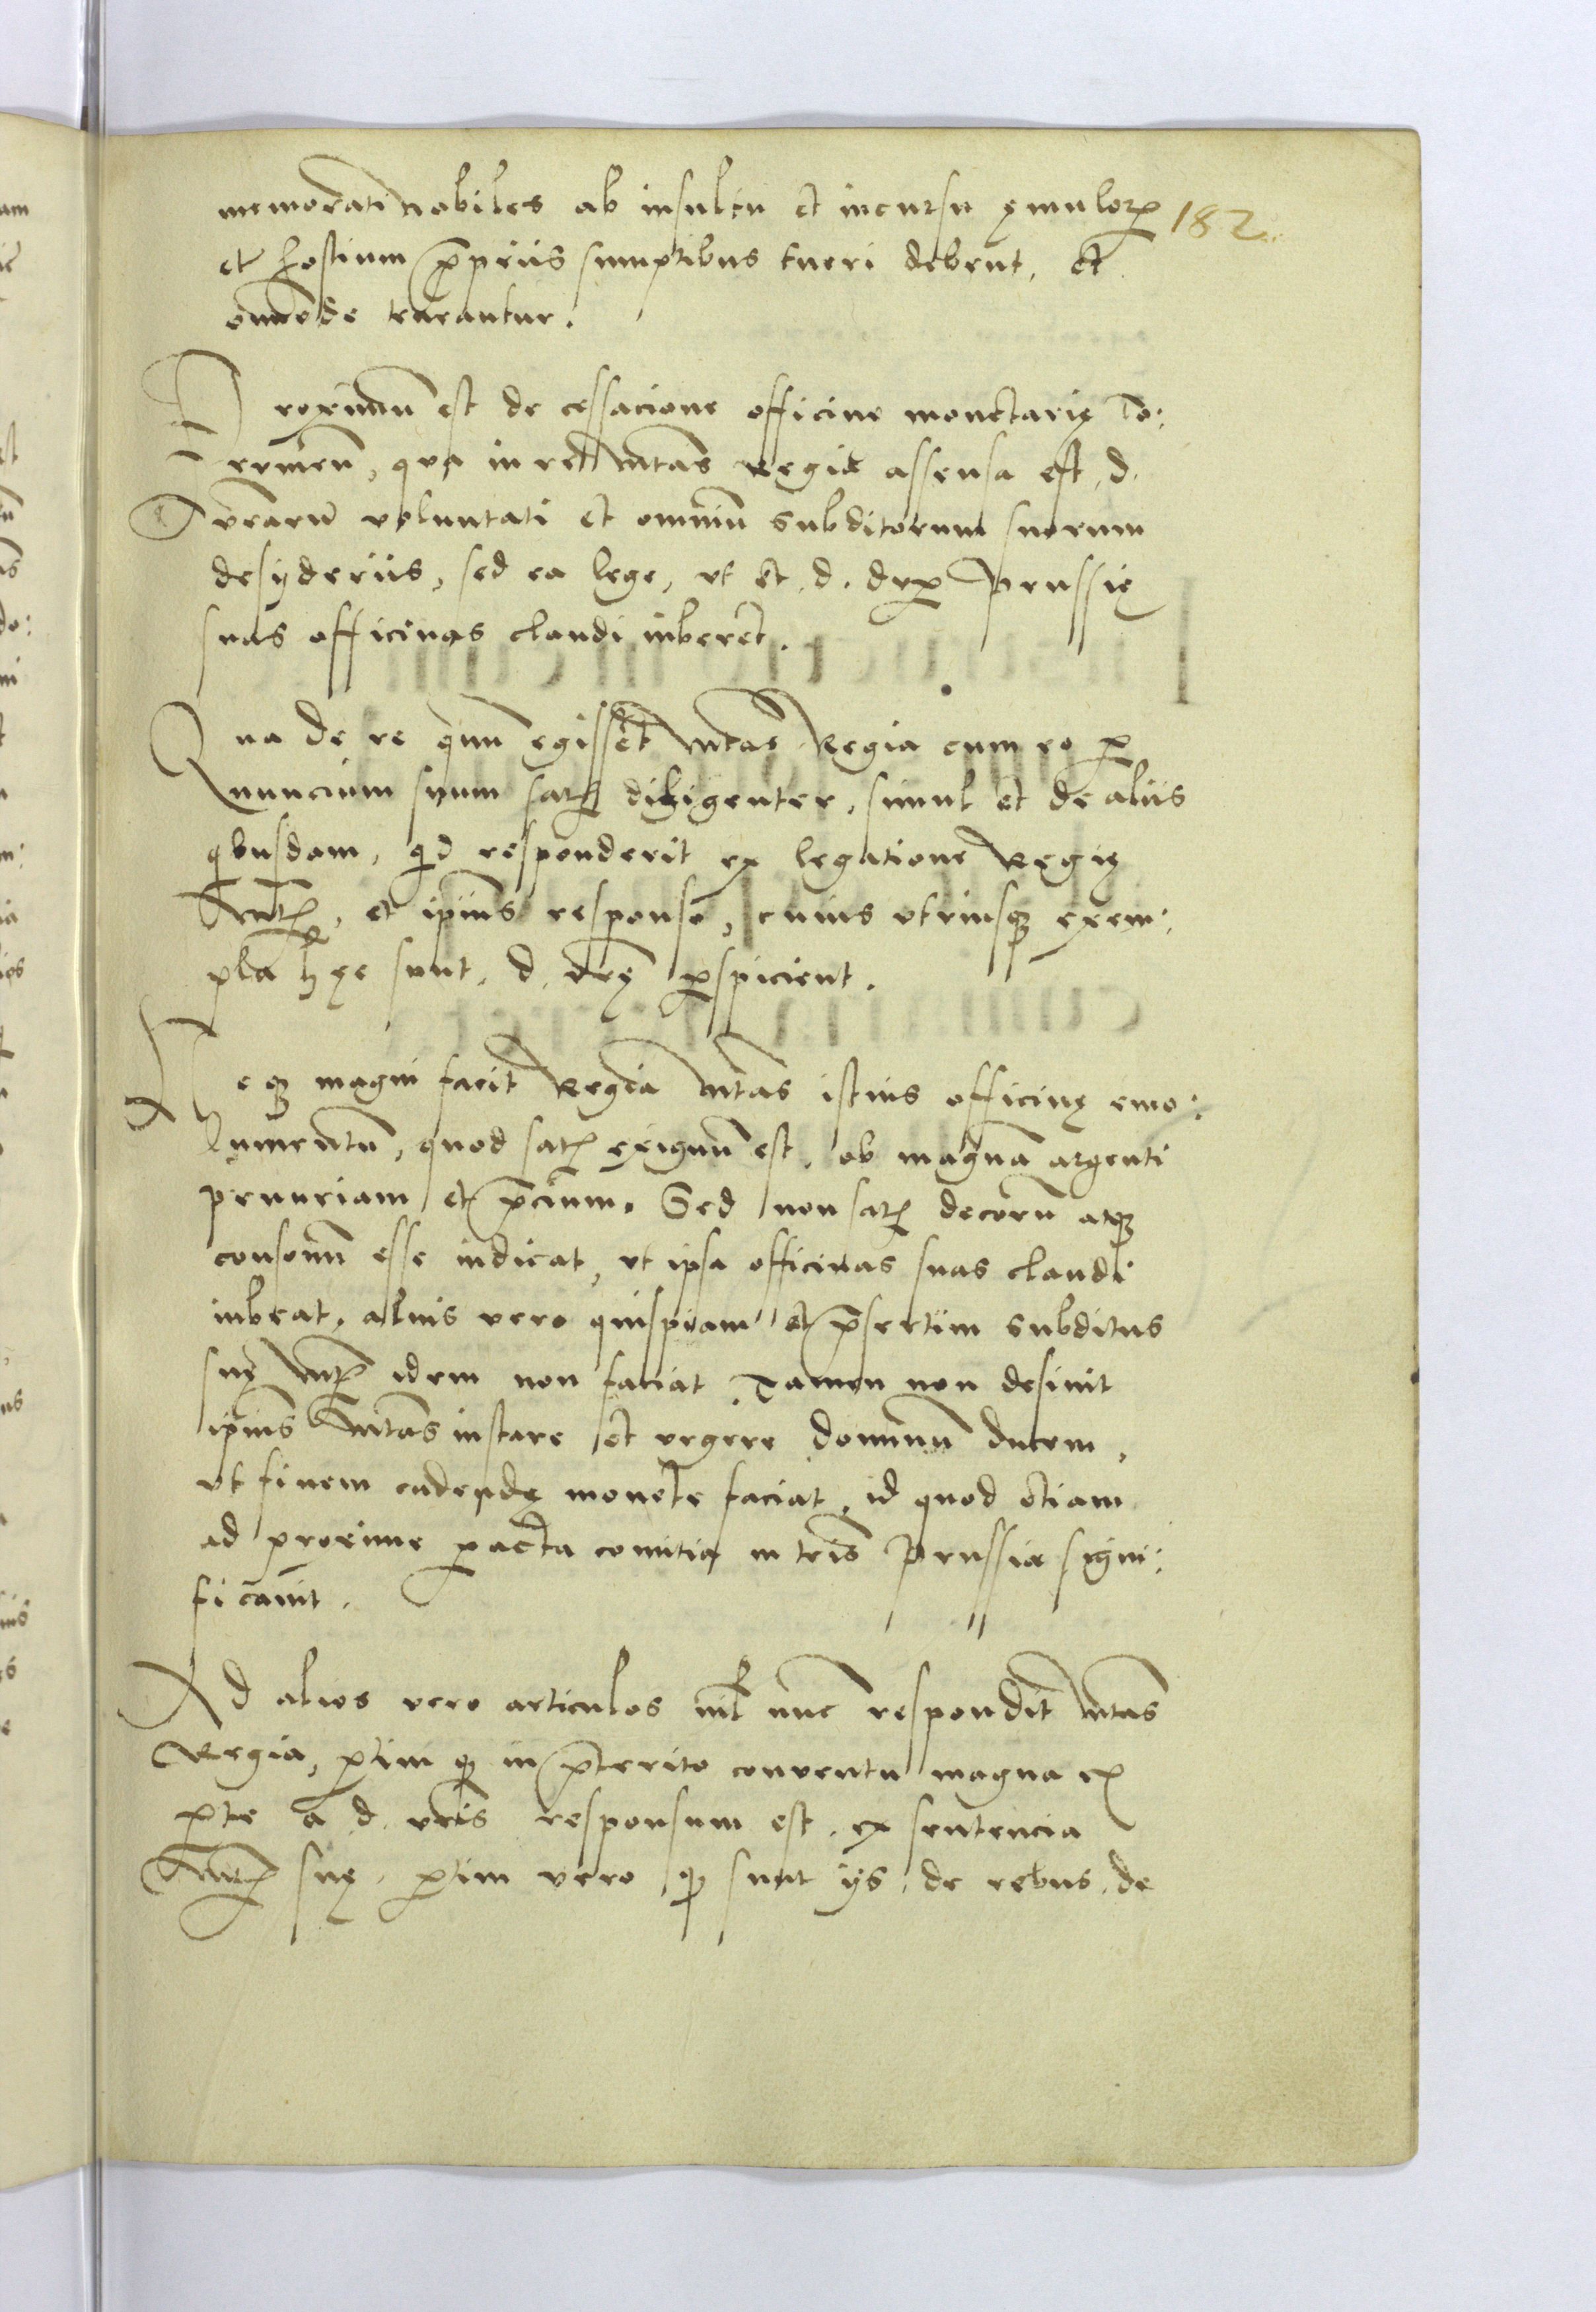 memorati nobiles ab insultu et incursu ęmulorꝫ 182
et hostium p̄priis sumptibus tueri debent, et
om̄ode tueantur.
Proximū est de cessacione officine monetarię To:
rūneñ, qua in re Mtas Regia assensa est, d.
vrārū voluntati et omniū subditorum suorum
desyderiis, sed ea lege, vt et d. dux Prussię
suas officinas claudi iuberet.
Qua de re quū egisset Mtas Regia cum eo p
nuncium suum satis diligenter, simul et de aliis
qbusdam, qd responderit ex legatione Regię
Mtis, et ipius responso, cuius vtriusqꝫ exem:
pla hęc sunt, d. vrę pspicient.
Neqꝫ magni facit Regia Mtas istius officinę emo:
lumentū, quod satis exiguū est, ob magnā argenti
penuriam et p̄cium. Sed non satis decorū atqꝫ
consonū esse iudicat, vt ipsa officinas suas claudi
iubeat, alius vero quispiam et p̄sertim subditus
suę Mtis idem non faciat. Tamen non desinit
ipius Mtas instare et vrgere dominū ducem,
vt finem cudendę monete faciat, id quod etiam
ad proxime pacta comitia in tris Prussie signi:
ficavit.
Ad alios vero articulos nil nūc respondit Mtas
Regia, ptim qꝫ in p̄terito conventu magna ex
pte a d. vris responsum est, ex sentencia
Mtis suę, ptim vero qꝫ sunt ijs de rebus, de